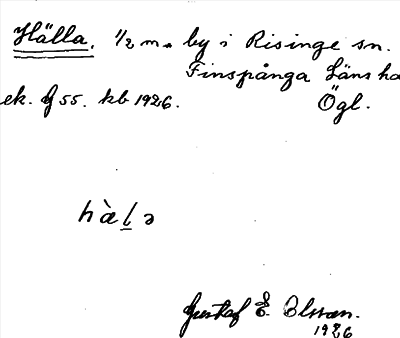 Hälla. 1/2 m. by i Risinge sn.
Finspånga Läns ha
ek. G 55. kb 1926. Ögl.
hàḻə
Gustaf E. Olsson.
1926